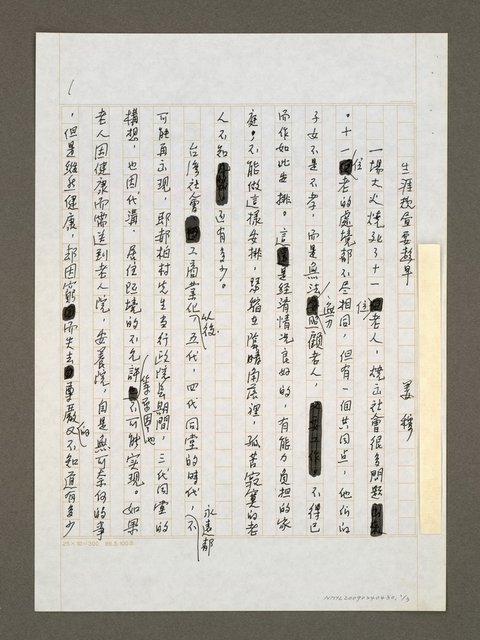 生涯規畫要趁早
姜穆
一場大火燒死了十一位老人，燒出社會很多問題
。十一位老的處境都不盡相同，但有一個共同點，他們的
子女不是不孝，而是無法無力照顧老人，不得已
而作如此安排。這是經濟情況良好的，有能力負担的家
庭，不能做這樣安排，蹲縮在陰暗角落裡，孤苦寂寞的老
人不知還有多少。
台灣社會工商業化以後，五代，四代同堂的時代，永遠都不
可能再出現，郝柏村先生當行政院長期間，三代同堂的
構想，也因代溝，居住環境的不允許等原因也不可能實現。如果
老人因健康而需送到老人院，安養院，自是無可奈何的事
，但是雖然健康，却因窮而失去尊嚴的又不知道有多少
1
25×12=300 88.5.100本
NMTL20090240430, 1/3